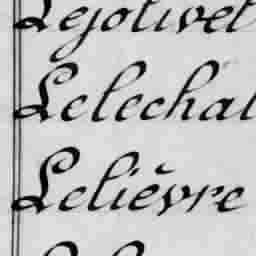 Lejolivet
Lelechat
Lelièvre